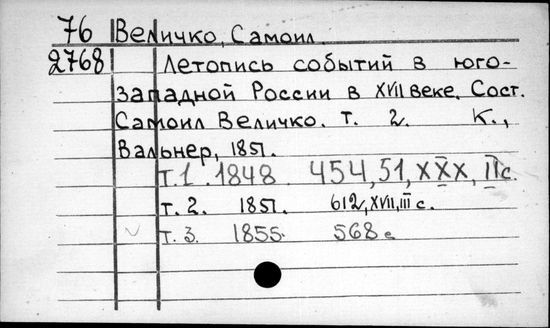 76 Величко, Самоил.
2768 Летопись событий в юго-
западной России в XVII веке. Сост.
Самоил Величко. т. 2. К.,
Вальнер, 1851.
т.1. 1848 454, 51, XXX, II с.
т. 2. 1851. 612, XVII, III с.
т. 3. 1855. 568 с